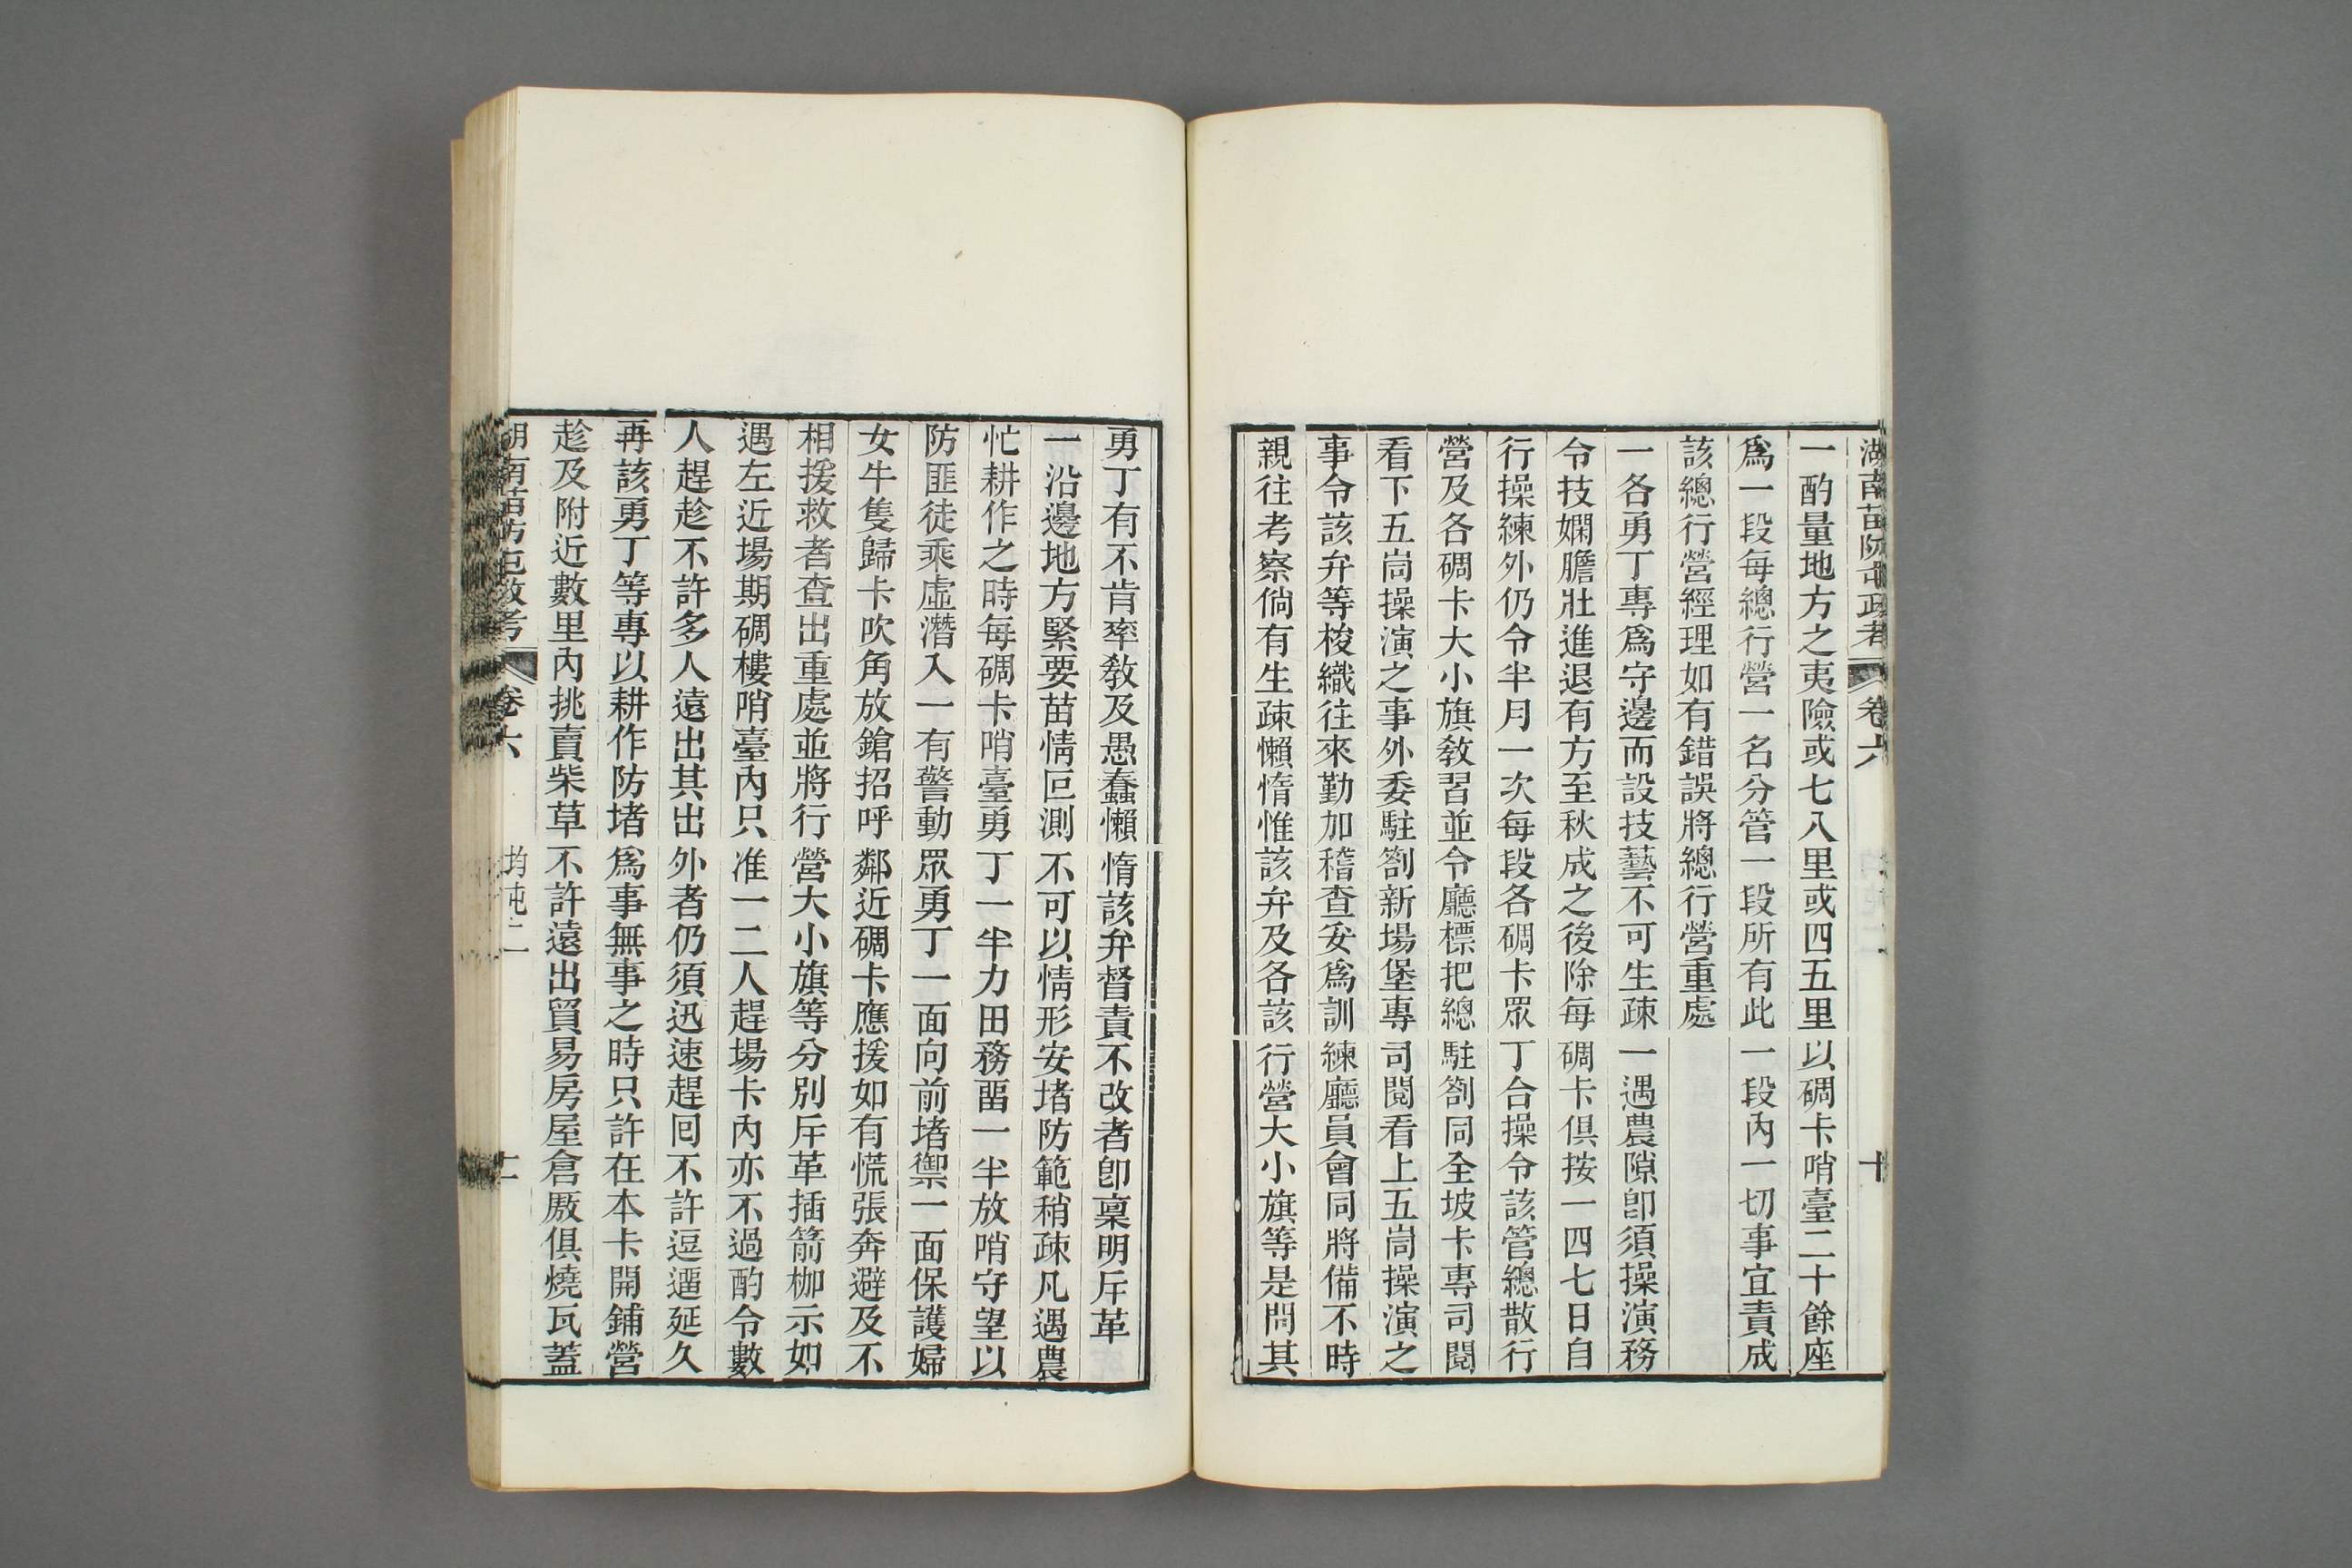 湖南苗防屯政考 卷六 十
一酌量地方之夷險或七八里或四五里以碉卡哨臺二十餘座
爲一段每總行營一名分管一段所有此一段內一切事宜責成
該總行營經理如有錯誤將總行營重處
一各勇丁專爲守邊而設技藝不可生疎一遇農隙卽須操演務
令技嫻膽壯進退有方至秋成之後除每碉卡俱按一四七日自
行操練外仍令半月一次每段各碉卡眾丁合操令該管總散行
營及各碉卡大小旗敎習並令廳標把總駐劄同全坡卡專司閱
看下五峝操演之事外委駐劄新場堡專司閱看上五峝操演之
事令該弁等梭織往來勤加稽查妥爲訓練廳員會同將備不時
親往考察倘有生疎懶惰惟該弁及各該行營大小旗等是問其
勇丁有不肯率敎及愚蠢懶惰該弁督責不改者卽稟明斥革
一沿邊地方緊要苗情叵測不可以情形安堵防範稍疎凡遇農
忙耕作之時每碉卡哨臺勇丁一半力田務畱一半放哨守望以
防匪徒乘虛潛入一有警動眾勇丁一面向前堵禦一面保護婦
女牛隻歸卡吹角放鎗招呼鄰近碉卡應援如有慌張奔避及不
相援救者查出重處並將行營大小旗等分別斥革插箭枷示如
遇左近場期碉樓哨臺內只准一二人趕場卡內亦不過酌令數
人趕趁不許多人遠出其出外者仍須迅速趕囘不許逗遛延久
再該勇丁等專以耕作防堵爲事無事之時只許在本卡開鋪營
趁及附近數里內挑賣柴草不許遠出貿易房屋倉厫俱燒瓦蓋
湖南苗防屯政考 卷六 均屯二